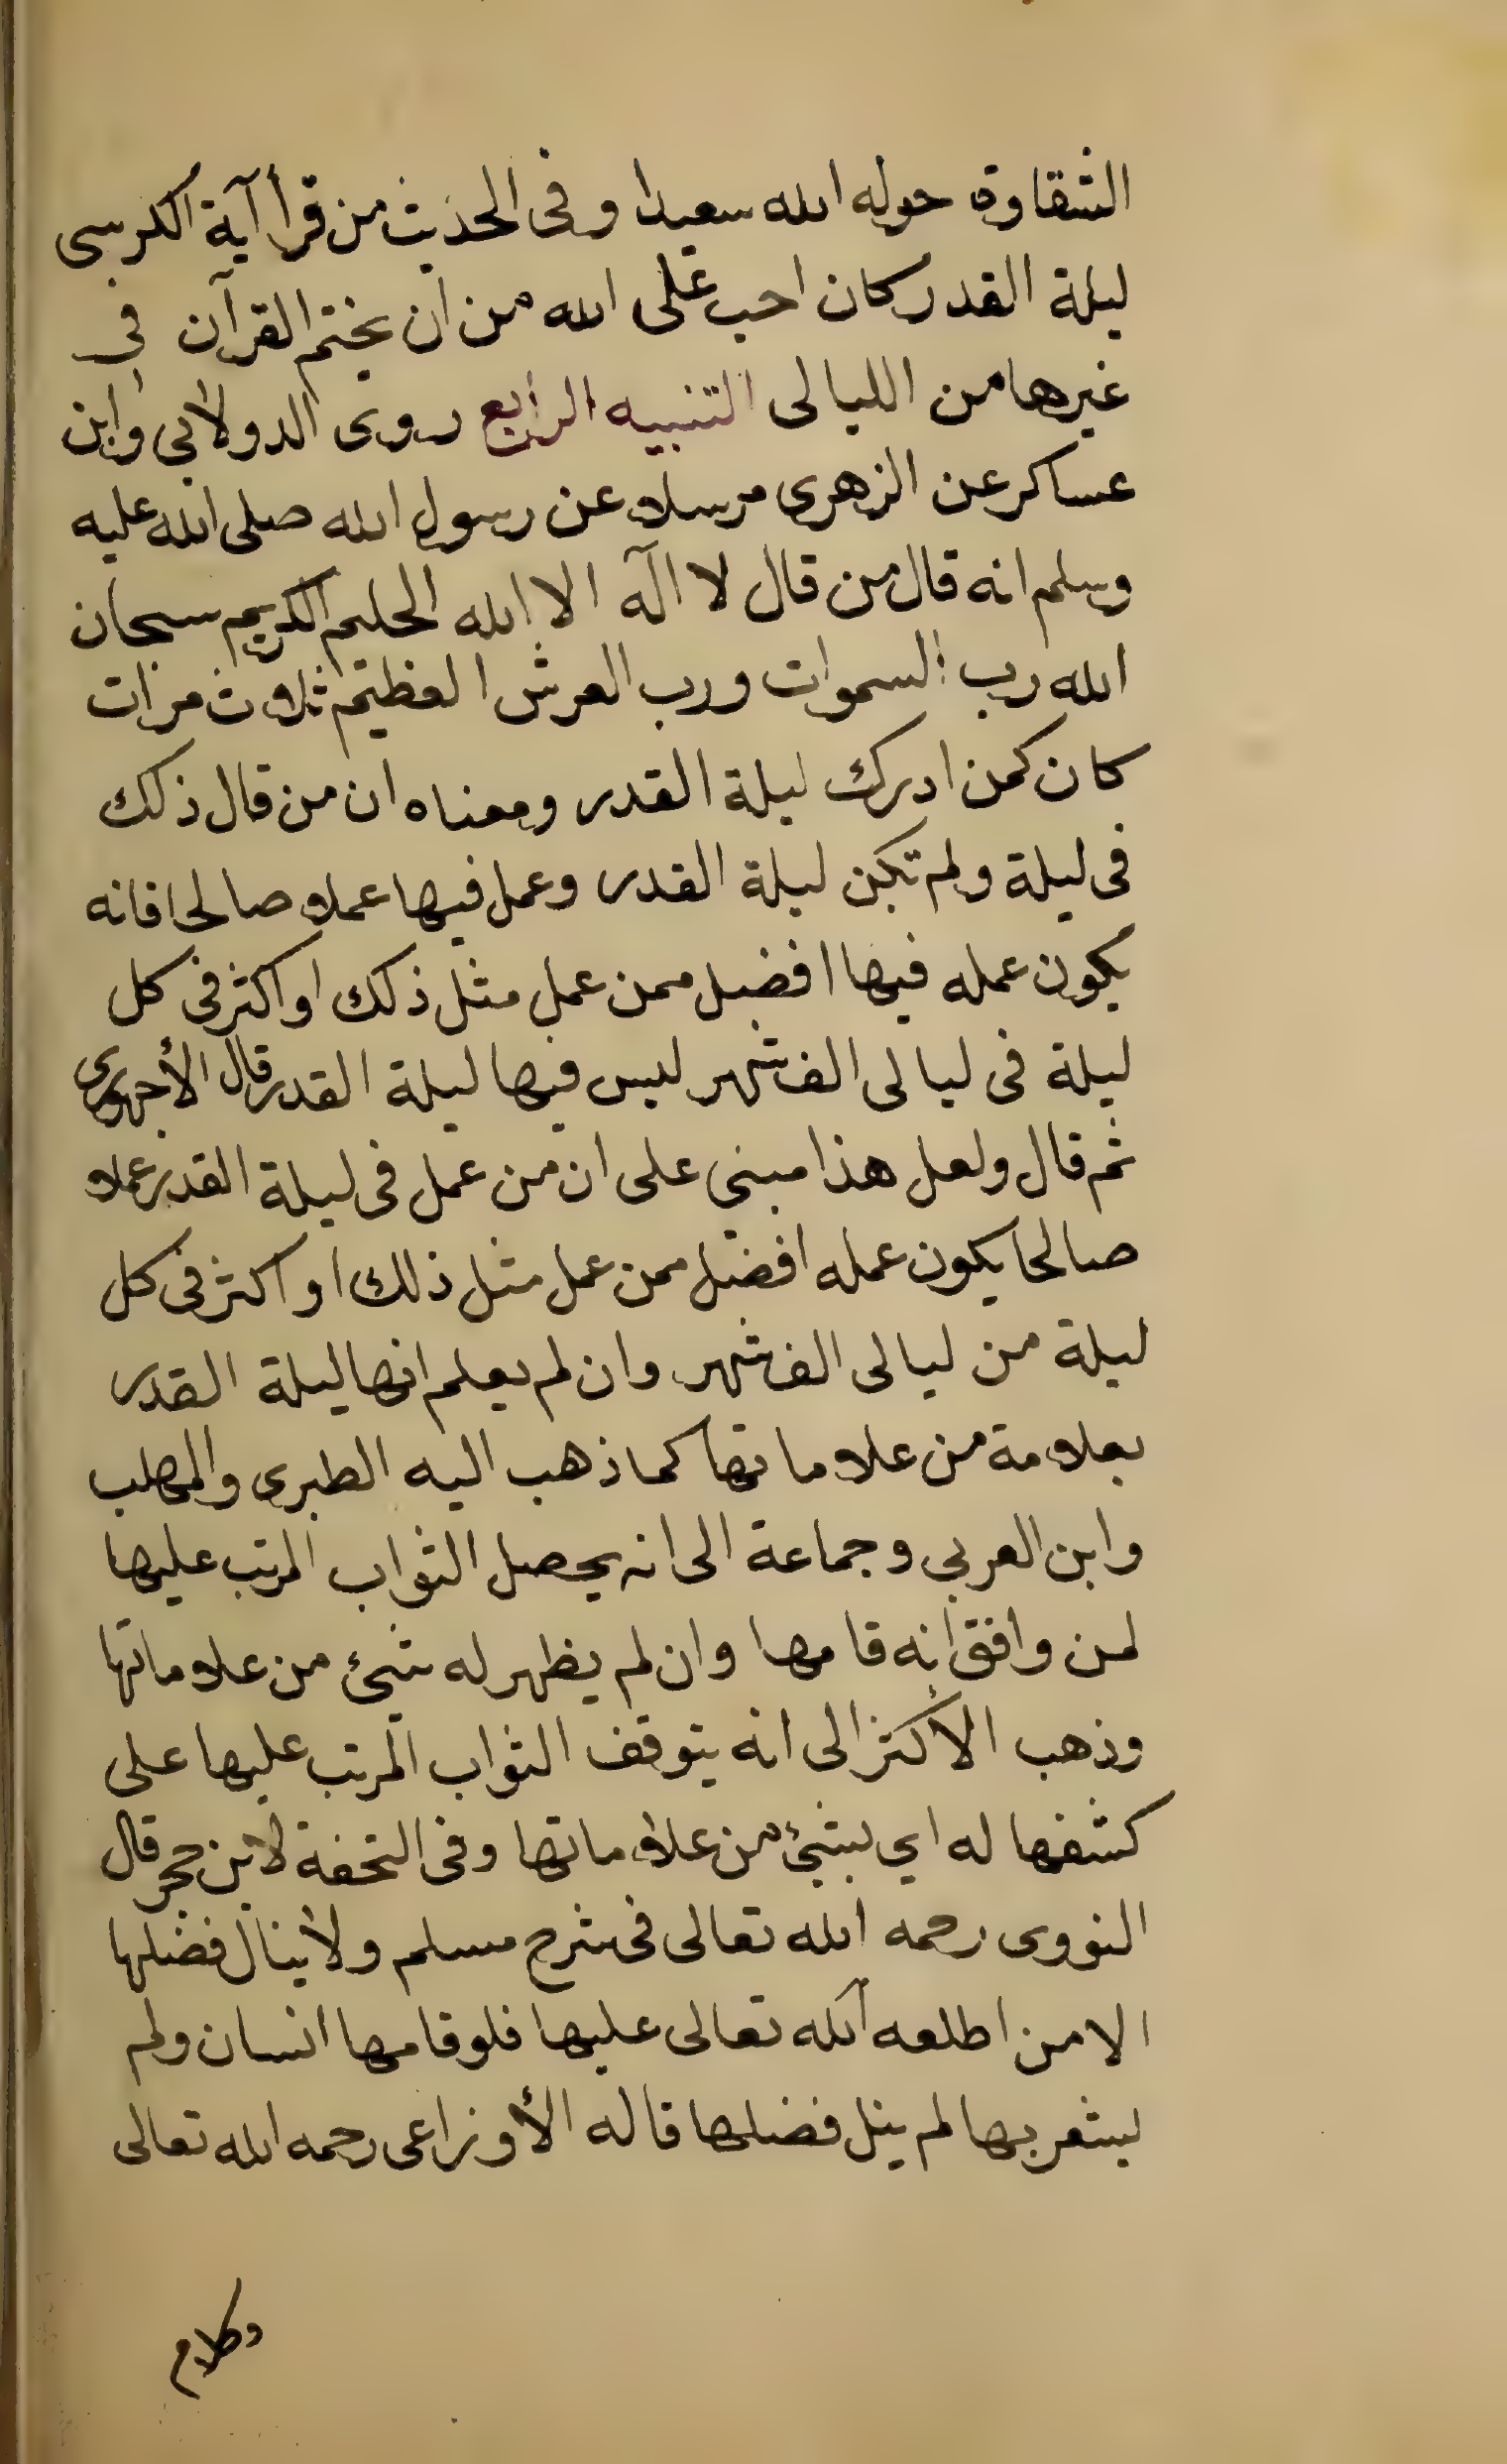 الشقاوة حوله الله سعيدا وفى الحديث من قرأ آية الكرسى
ليلة القدر كان احب على الله من ان يختم القرآن فى
غيرها من الليالى التنبيه الرابع روى الدولابي وابن
عساكر عن الزهرى مرسلا عن رسول الله صلى الله عليه
وسلم انه قال من قال لا اله الا الله الحليم الكريم سبحان
الله رب السموات ورب العرش العظيم ثلاث مرات
كان كمن ادرك ليلة القدر ومعناه ان من قال ذلك
فى ليلة ولم تكن ليلة القدر وعمل فيها عملا صالحا فانه
يكون عمله فيها افضل ممن عمل مثل ذلك او اكثر فى كل
ليلة فى ليالى الف شهر ليس فيها ليلة القدر قال الأجهورى
ثم قال ولعل هذا مبني على ان من عمل فى ليلة القدر عملا
صالحا يكون عمله افضل ممن عمل مثل ذلك او اكثر فى كل
ليلة من ليالى الف شهر وان لم يعلم انها ليلة القدر
بعلامة من علاماتها كما ذهب اليه الطبرى والمهلب
وابن العربي وجماعة الى انه يحصل الثواب المرتب عليها
لمن وافق انه قامها وان لم يظهر له شيئ من علاماتها
وذهب الأكثر الى انه يتوقف الثواب المرتب عليها على
كشفها له اي بشيئ من علاماتها وفى التحفة لابن حجر قال
النووى رحمه الله تعالى فى شرح مسلم ولا ينال فضلها
الا من اطلعه الله تعالى عليها فلو قامها انسان ولم
يشعر بها لم ينل فضلها قاله الأوزاعى رحمه الله تعالى
وكلام